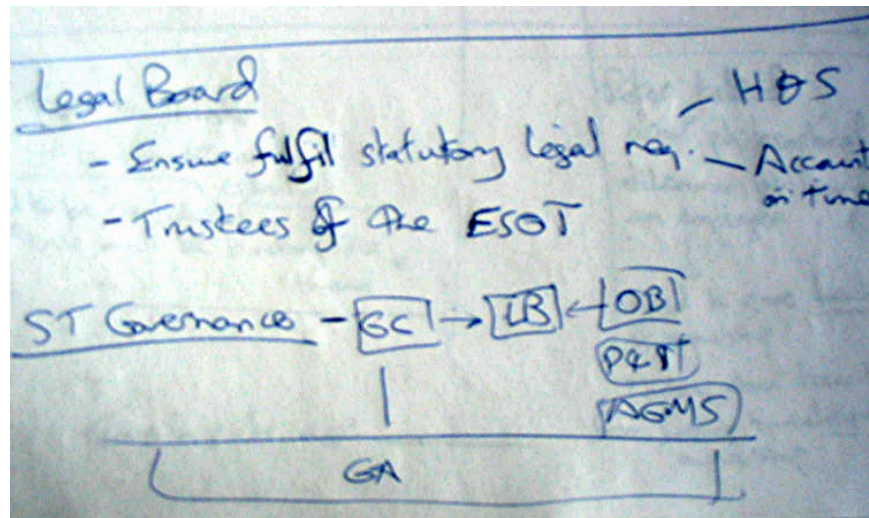 Legal Board
- Ensure fulfil statutory legal req. - H&S
- Account on time
- Trustees of the ESOT
ST Governance - GC → LB ← OB
AGMS
GA